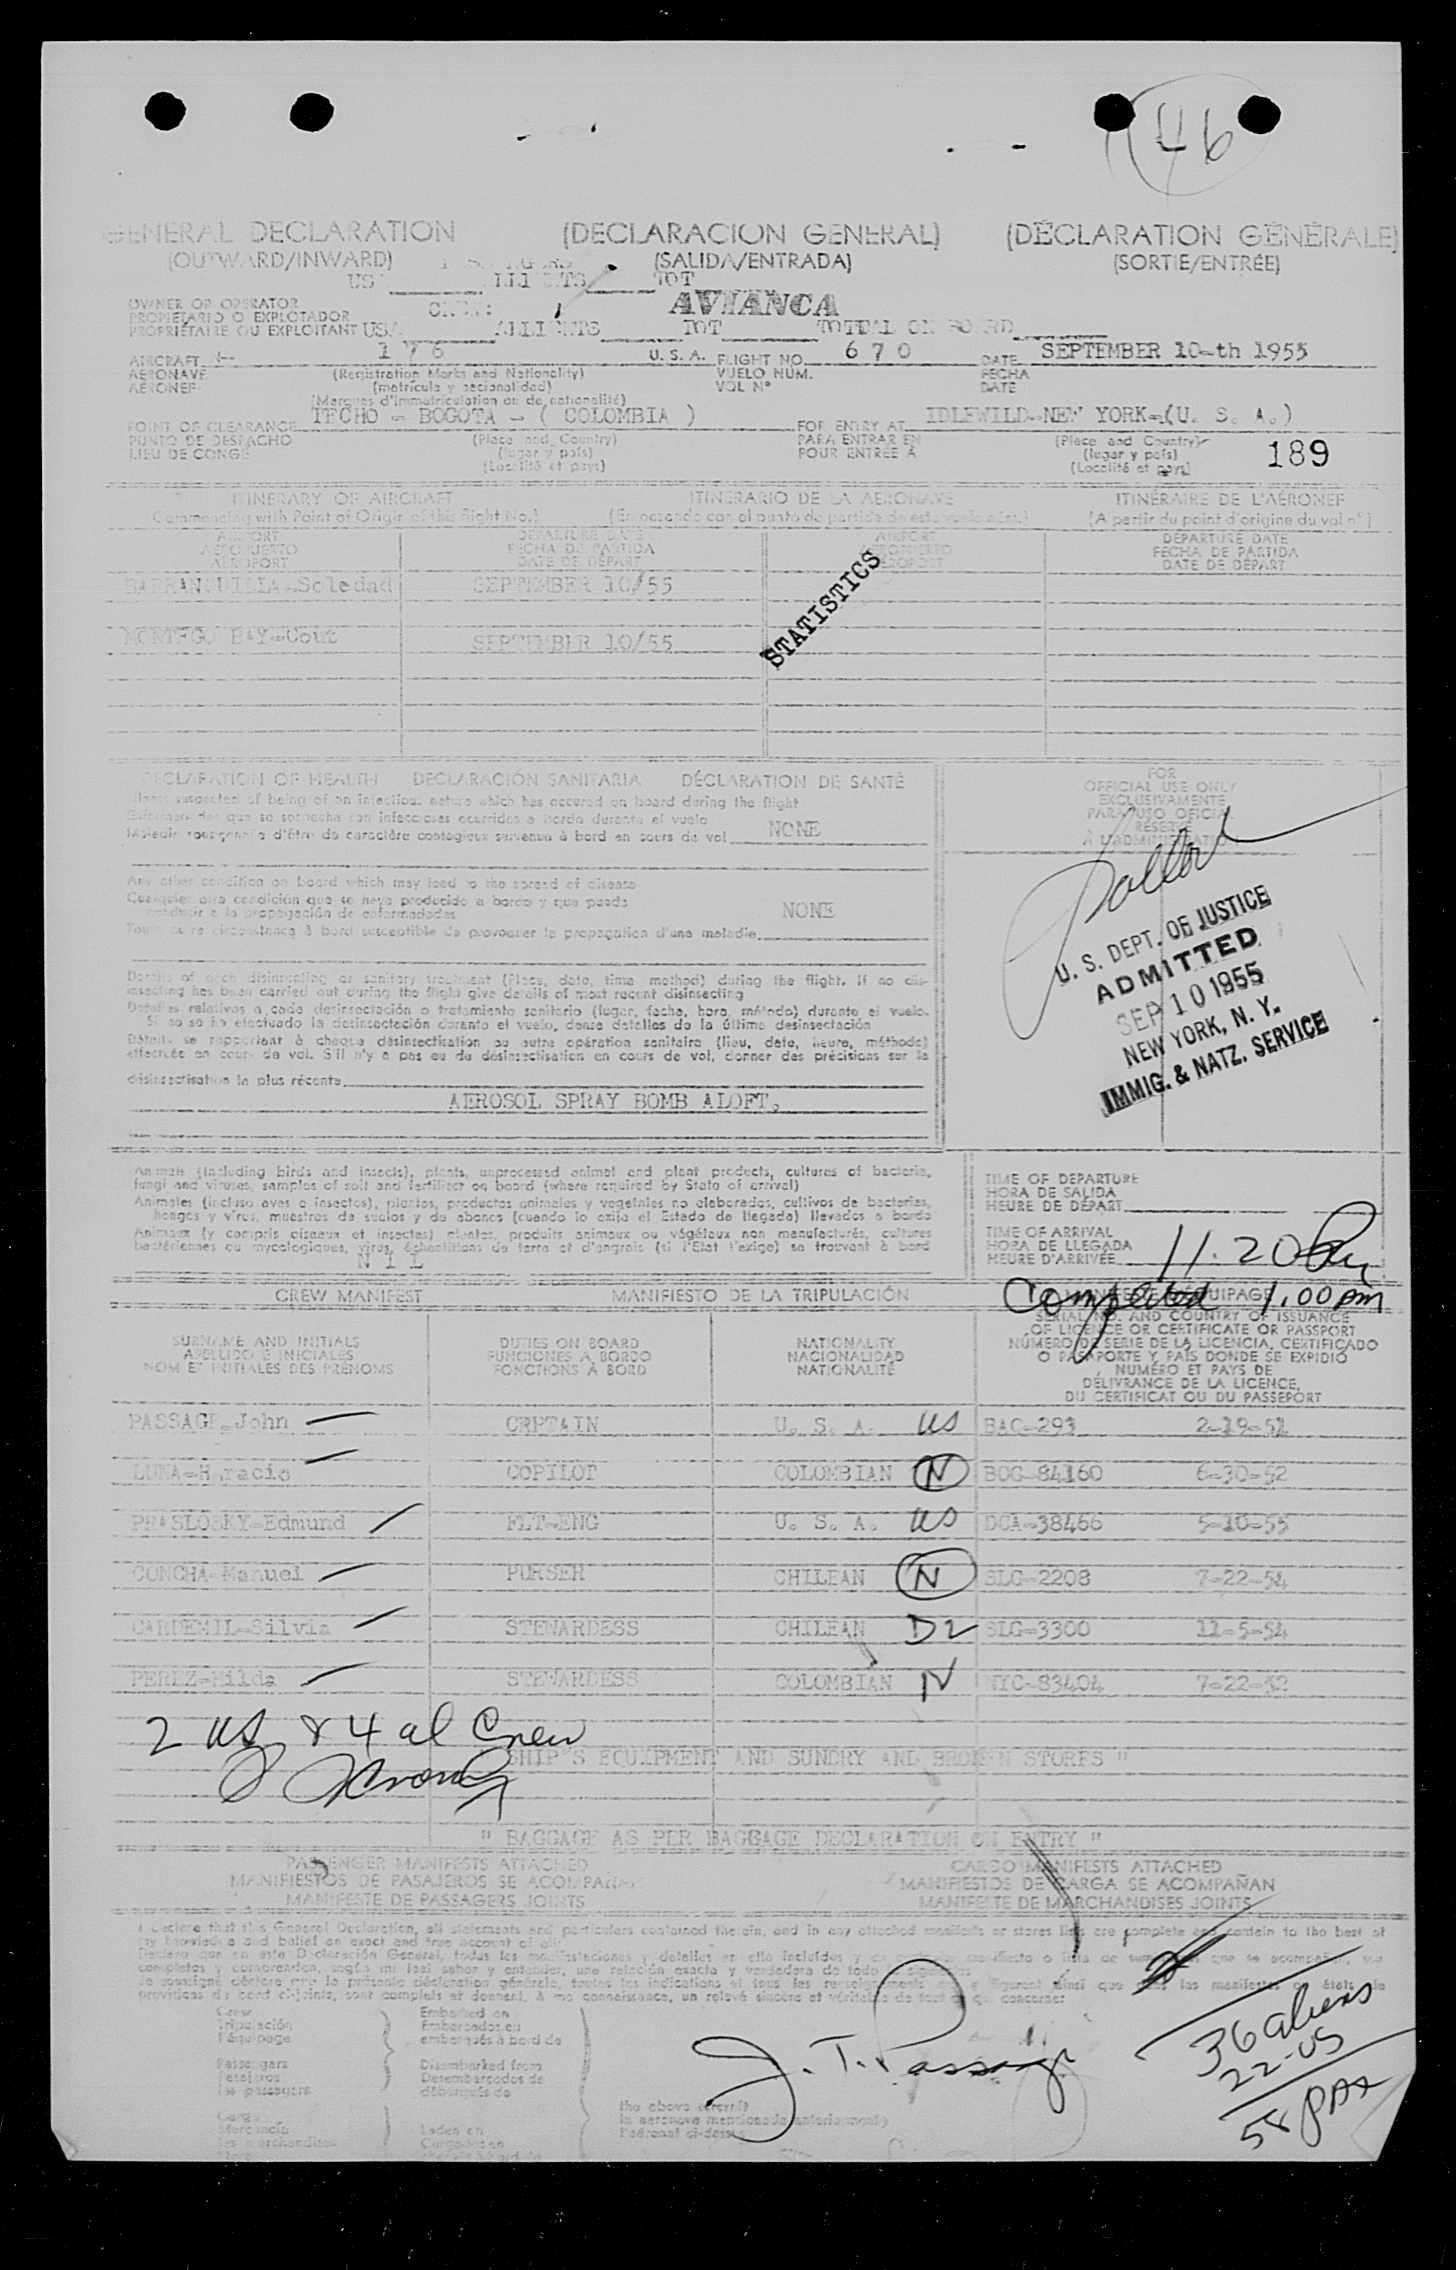 46
GENERAL DECLARATION (DECLARACION GENERAL) (DÉCLARATION GÉNÉRALE)
(OUTWARD/INWARD) (SALIDA/ENTRADA) (SORTIE/ENTRÉE)
US TOT
OWNER OR OPERATOR
PROPIETARIO O EXPLOTADOR AVIANCA
PROPRIÉTAIRE OU EXPLOITANT USA TOT TOTAL ON BOARD
AIRCRAFT N- 176 U.S.A. FLIGHT NO. 670 DATE SEPTEMBER 10-th 1955
AERONAVE (Registration Marks and Nationality) VUELO NUM. FECHA
AÉRONEF (matrícula y nacionalidad) VOL Nº DATE
(Marques d'immatriculation ou de nationalité)
POINT OF CLEARANCE TECHO - BOGOTA - ( COLOMBIA ) FOR ENTRY AT IDLEWILD-NEW YORK-(U. S. A.)
PUNTO DE DESPACHO (Place and Country) PARA ENTRAR EN (Place and Country)
LIEU DE CONGÉ (lugar y país) POUR ENTRÉE A (lugar y país) 189
(Localité et pays) (Localité et pays)
ITINERARY OF AIRCRAFT ITINERARIO DE LA AERONAVE ITINÉRAIRE DE L'AÉRONEF
(Commencing with Point of Origin of this flight No.) (Empezando con el punto de partida de este vuelo núm.) (A partir du point d'origine du vol nº)
AIRPORT DEPARTURE DATE AIRPORT DEPARTURE DATE
AEROPUERTO FECHA DE PARTIDA AEROPUERTO FECHA DE PARTIDA
AÉROPORT DATE DE DÉPART AÉROPORT DATE DE DÉPART
BARRANQUILLA-Soledad SEPTEMBER 10/55
STATISTICS
MONTEGO BAY-Cout SEPTEMBER 10/55
DECLARATION OF HEALTH DECLARACIÓN SANITARIA DÉCLARATION DE SANTÉ
FOR
OFFICIAL USE ONLY
EXCLUSIVAMENTE
PARA USO OFICIAL
RÉSERVÉ
À L'ADMINISTRATION
Illness suspected of being of an infectious nature which has occured on board during the flight
Enfermedades que se sospecha son infecciosas ocurridas a bordo durante el vuelo
Maladie soupçonnée d'être de caractère contagieux survenue à bord en cours de vol NONE
Any other condition on board which may lead to the spread of disease
Cualquier otra condición que se haya producido a bordo y que pueda
conducir a la propagación de enfermedades NONE
Toute autre circonstance à bord susceptible de provoquer la propagation d'une maladie
U. S. DEPT. OF JUSTICE
ADMITTED
SEP 10 1955
NEW YORK, N. Y.
IMMIG. & NATZ. SERVICE
Details of each disinsecting or sanitary treatment (Place, date, time method) during the flight. If no dis-
insecting has been carried out during the flight give details of most recent disinsecting
Detalles relativos a cada desinsectación o tratamiento sanitario (lugar, fecha, hora, método) durante el vuelo.
Si no se ha efectuado la desinsectación durante el vuelo, dense detalles de la última desinsectación
Détails se rapportant à chaque désinsectisation ou autre opération sanitaire (lieu, date, heure, méthode)
effectuée en cours de vol. S'il n'y a pas eu de désinsectisation en cours de vol, donner des précisions sur la
désinsectisation la plus récente
AEROSOL SPRAY BOMB ALOFT,
Animals (including birds and insects), plants, unprocessed animal and plant products, cultures of bacteria,
fungi and viruses, samples of soil and fertilizer on board (where required by State of arrival)
Animales (incluso aves e insectos), plantas, productos animales y vegetales no elaborados, cultivos de bacterias,
hongos y virus, muestras de suelos y de abonos (cuando lo exija el Estado de llegada) llevados a bordo
Animaux (y compris oiseaux et insectes) plantes, produits animaux ou végétaux non manufacturés, cultures
bactériennes ou mycologiques, virus, échantillons de terre et d'engrais (si l'Etat l'exige) se trouvant à bord
NIL
TIME OF DEPARTURE
HORA DE SALIDA
HEURE DE DÉPART
TIME OF ARRIVAL
HORA DE LLEGADA
HEURE D'ARRIVÉE 11.20 am
Completed 1.00 pm
CREW MANIFEST MANIFIESTO DE LA TRIPULACIÓN
SURNAME AND INITIALS DUTIES ON BOARD NATIONALITY SERIAL NO. AND COUNTRY OF ISSUANCE
APELLIDO E INICIALES FUNCIONES A BORDO NACIONALIDAD OF LICENCE OR CERTIFICATE OR PASSPORT
NOM ET INITIALES DES PRÉNOMS FONCTIONS À BORD NATIONALITÉ NÚMERO DE SERIE DE LA LICENCIA, CERTIFICADO
O PASAPORTE Y PAÍS DONDE SE EXPIDIÓ
NUMÉRO ET PAYS DE
DÉLIVRANCE DE LA LICENCE,
DU CERTIFICAT OU DU PASSEPORT
PASSAGE-John CRPTAIN U. S. A. US BAC-293 2-19-51
LUNA-Horacio COPILOT COLOMBIAN N BOG-84160 6-30-52
PRASLOSKY-Edmund FLT-ENG U. S. A. US DCA-38466 5-10-55
CONCHA-Manuel PURSER CHILEAN N SLG-2208 7-22-54
CARDEMIL-Silvia STEWARDESS CHILEAN D2 SLG-3300 11-5-54
PEREZ-Hilda STEWARDESS COLOMBIAN N NYC-83404 7-22-52
2 US & 4 al Crew
SHIP'S EQUIPMENT AND SUNDRY AND BROKEN STORES "
" BAGGAGE AS PER BAGGAGE DECLARATION ON ENTRY "
PASSENGER MANIFESTS ATTACHED CARGO MANIFESTS ATTACHED
MANIFIESTOS DE PASAJEROS SE ACOMPAÑAN MANIFIESTOS DE CARGA SE ACOMPAÑAN
MANIFESTE DE PASSAGERS JOINTS MANIFESTE DE MARCHANDISES JOINTS
I declare that this General Declaration, all statements and particulars contained therein, and in any attached manifests or stores lists are complete and contain to the best of
my knowledge and belief an exact and true account of all
Crew Embarked on
Tripulación Embarcados en
l'équipage embarqués à bord de
Passengers Disembarked from
Pasajeros Desembarcados de
les passagers débarqués de
Cargo the above aircraft
Mercancía Laden on la aeronave mencionada anteriormente
les marchandises Cargados en l'aéronef ci-dessus
J. T. Passage
36 aliens
22-US
58 pax